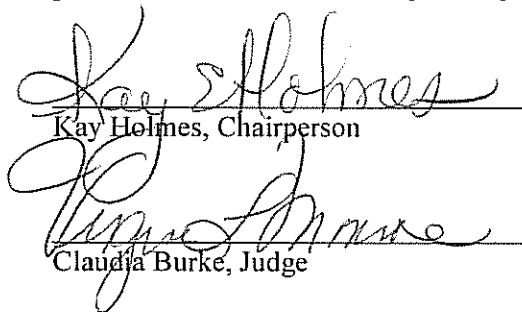 Kay E Holmes
Kay Holmes, Chairperson
L Monroe
Claudia Burke, Judge